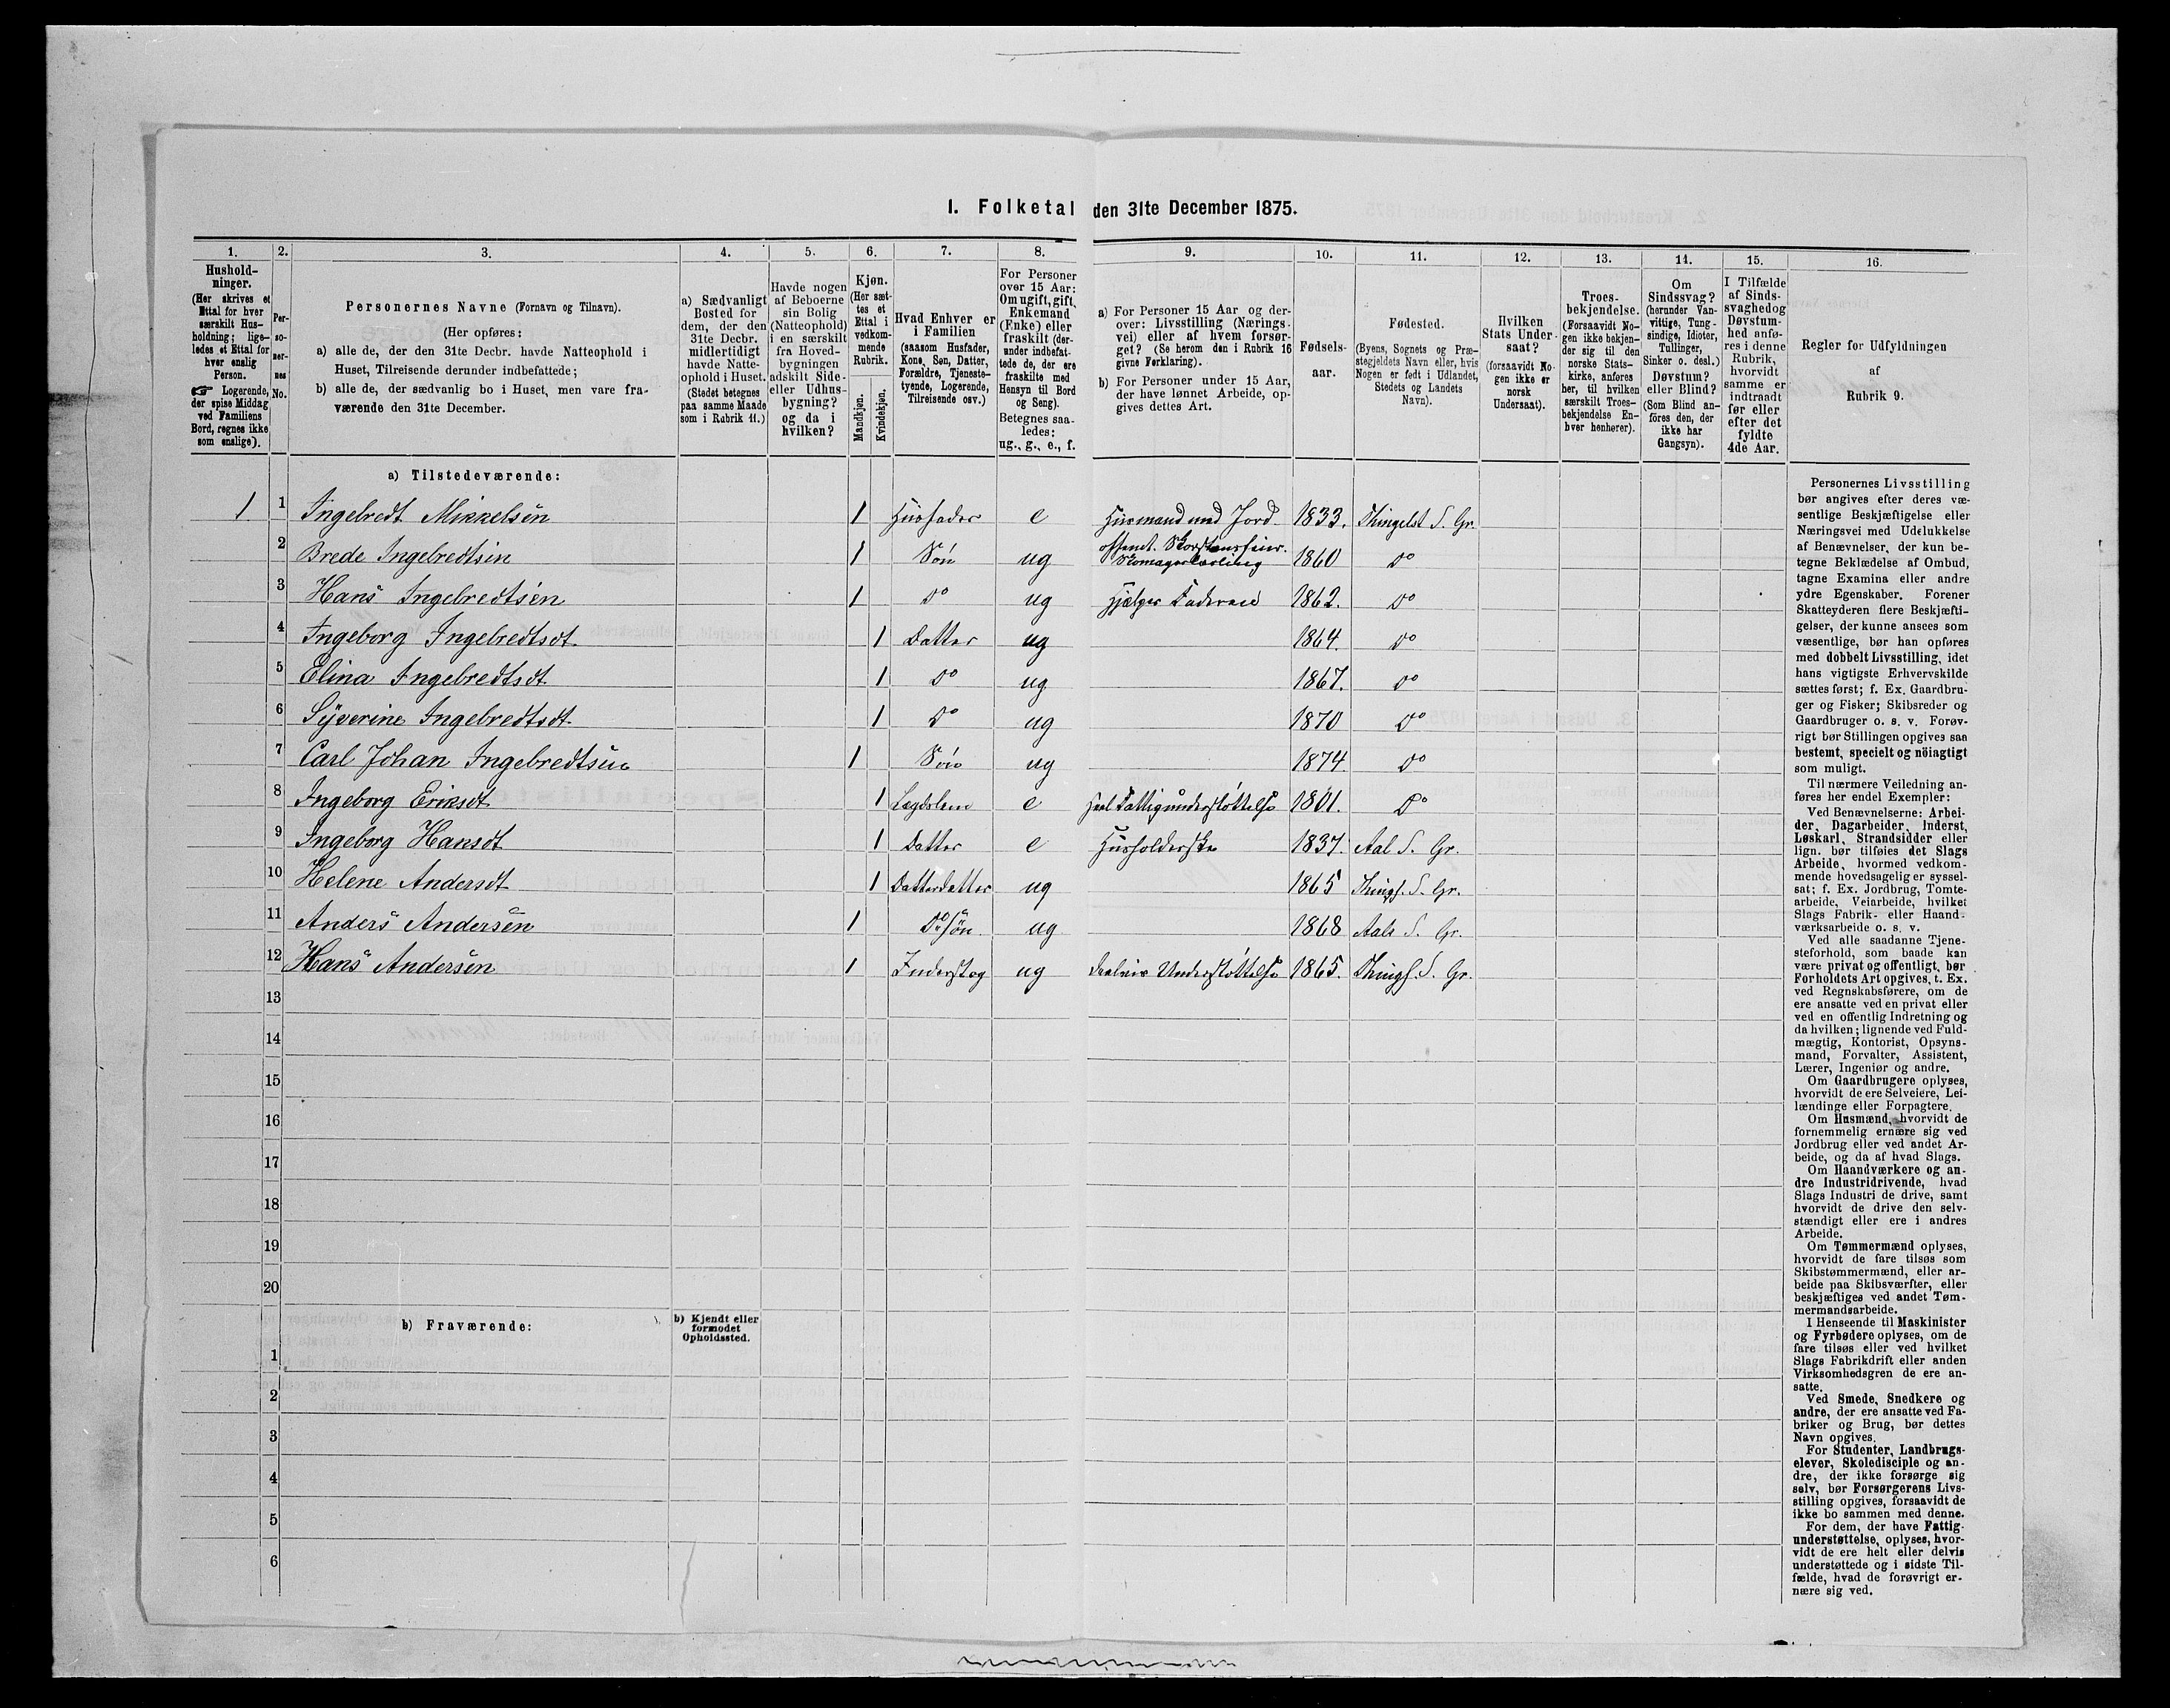 1. Folketal den 31te December 1875.
1. 2. 3. 4. 5. 6. 7. 8. 9. 10. 11. 12. 13. 14. 15. 16.
Hushold-
ninger.
(Her skrives et
Ettal for hver
særskilt Hus-
holdning; lige-
ledes et Ettal for
hver enslig
Person.
☞ Logerende,
der spise Middag
ved Familiens
Bord, regnes ikke
som enslige).
Per-
so-
ner-
nes
No.
Personernes Navne (Fornavn og Tilnavn).
(Her opføres:
a) alle de, der den 31te Decbr. havde Natteophold i
Huset, Tilreisende derunder indbefattede;
b) alle de, der sædvanlig bo i Huset, men vare fra-
værende den 31te December.
a) Sædvanligt
Bosted for
dem, der den
31te Decbr.
midlertidigt
havde Natte-
ophold i Huset.
(Stedet betegnes
paa samme Maade
som i Rubrik 11.)
Havde nogen
af Beboerne
sin Bolig
(Natteophold)
i en særskilt
fra Hoved-
bygningen
adskilt Side-
eller Udhus-
bygning?
og da i
hvilken?
Kjøn.
(Her sæt-
tes et
Ettal i
vedkom-
mende
Rubrik.
Mandkjøn.
Kvindekjøn.
Hvad Enhver er
i Familien
(saasom Husfader,
Kone, Søn, Datter,
Forældre, Tjeneste-
tyende, Logerende,
Tilreisende osv.)
For Personer
over 15 Aar:
Om ugift, gift,
Enkemand
(Enke) eller
fraskilt (der-
under indbefat-
tede de, der ere
fraskilte med
Hensyn til Bord
og Seng).
Betegnes saa-
ledes:
ug., g., e., f.
a) For Personer 15 Aar og der-
over: Livsstilling (Nærings-
vei) eller af hvem forsør-
get? (Se herom den i Rubrik 16
givne Forklaring).
b) For Personer under 15 Aar,
der have lønnet Arbeide, op-
gives dettes Art.
Fødsels-
aar.
Fødested.
(Byens, Sognets og Præ-
stegjeldets Navn eller, hvis
Nogen er født i Udlandet,
Stedets og Landets
Navn).
Hvilken
Stats Under-
saat?
(forsaavidt No-
gen ikke er
norsk
Undersaat).
Troes-
bekjendelse.
(Forsaavidt No-
gen ikke bekjen-
der sig til den
norske Stats-
kirke, anføres
her, til hvilken
særskilt Troes-
bekjendelse En-
hver henhører).
Om
Sindssvag?
(herunder Van-
vittige, Tung-
sindige, Idioter,
Tullinger,
Sinker o. desl.)
Døvstum?
eller Blind?
(Som Blind an-
føres den, der
ikke har
Gangsyn).
I Tilfælde
af Sinds-
svaghed og
Døvstum-
hed anfø-
res i denne
Rubrik,
hvorvidt
samme er
indtraadt
før eller
efter det
fyldte
4de Aar.
Regler for Udfyldningen
af
Rubrik 9.
a) Tilstedeværende:
1 1 Ingebredt Mikkelsen 1 Husfader e Husmand med Jord 1833. Thingelst S. Gr.
offent. Skorstensfeier.
2 Brede Ingebredtsen 1 Søn ug Skomagerlærling 1860 Do
3 Hans Ingebredtsen 1 Do ug Hjælper Faderen 1862. Do
4 Ingeborg Ingebredtsdt. 1 Datter ug 1864. Do
5 Elina Ingebredtsdt. 1 Do ug 1867. Do
6 Syverine Ingebredtsdt. 1 Do ug 1870 Do
7 Carl Johan Ingebredtsen 1 Søn ug 1874 Do
8 Ingeborg Eriksdt. 1 Lægdslem e Heel Fattigunderstøttelse 1801. Do
9 Ingeborg Hansdt 1 Datter e Husholderske 1837. Aal S. Gr.
10 Helene Andersdt 1 Datterdatter ug 1865 Thingl. S. Gr.
11 Anders Andersen 1 Do søn ug 1868 Aals S. Gr.
12 Hans Andersen 1 Inderstog ug deelvis Understøttelse 1865. Thingl. S. Gr.
13
14
15
16
17
18
19
20
b) Fraværende:
b) Kjendt eller
formodet
Opholdssted.
1
2
3
4
5
6
Personernes Livsstilling
bør angives efter deres væ-
sentlige Beskjæftigelse eller
Næringsvei med Udelukkelse
af Benævnelser, der kun be-
tegne Beklædelse af Ombud,
tagne Examina eller andre
ydre Egenskaber. Forener
Skatteyderen flere Beskjæfti-
gelser, der kunne ansees som
væsentlige, bør han opføres
med dobbelt Livsstilling, idet
hans vigtigste Erhvervskilde
sættes først; f. Ex. Gaardbru-
ger og Fisker; Skibsreder og
Gaardbruger o. s. v. Forøv-
rigt bør Stillingen opgives saa
bestemt, specielt og nöiagtigt
som muligt.
Til nærmere Veiledning an-
føres her endel Exempler:
Ved Benævnelserne: Arbei-
der, Dagarbeider, Inderst,
Løskarl, Strandsidder eller
lign. bør tilføies det Slags
Arbeide, hvormed vedkom-
mende hovedsagelig er syssel-
sat; f. Ex. Jordbrug, Tomte-
arbeide, Veiarbeide, hvilket
Slags Fabrik- eller Haand-
værksarbeide o. s. v.
Ved alle saadanne Tjene-
steforhold, som baade kan
være privat og offentligt, bør
Forholdets Art opgives, t. Ex.
ved Regnskabsførere, om de
ere ansatte ved en privat eller
ved en offentlig Indretning og
da hvilken; lignende ved Fuld-
mægtig, Kontorist, Opsyns-
mand, Forvalter, Assistent,
Lærer, Ingeniør og andre.
Om Gaardbrugere oplyses,
hvorvidt de ere Selveiere, Lei-
lændinge eller Forpagtere.
Om Husmænd, hvorvidt de
fornemmelig ernære sig ved
Jordbrug eller ved andet Ar-
beide, og da af hvad Slags.
Om Haandværkere og an-
dre Industridrivende, hvad
Slags Industri de drive, samt
hvorvidt de drive den selv-
stændigt eller ere i andres
Arbeide.
Om Tømmermænd oplyses,
hvorvidt de fare tilsøs som
Skibstømmermænd, eller ar-
beide paa Skibsværfter, eller
beskjæftiges ved andet Tøm-
mermandsarbeide.
I Henseende til Maskinister
og Fyrbødere oplyses, om de
fare tilsøs eller ved hvilket
Slags Fabrikdrift eller anden
Virksomhedsgren de ere an-
satte.
Ved Smede, Snedkere og
andre, der ere ansatte ved Fa-
briker og Brug, bør dettes
Navn opgives.
For Studenter, Landbrugs-
elever, Skoledisciple og an-
dre, der ikke forsørge sig
selv, bør Forsørgerens Livs-
stilling opgives, forsaavidt de
ikke bo sammen med denne.
For dem, der have Fattig-
understøttelse, oplyses, hvor-
vidt de ere helt eller delvis
understøttede og i sidste Til-
fælde, hvad de forøvrigt er-
nære sig ved.